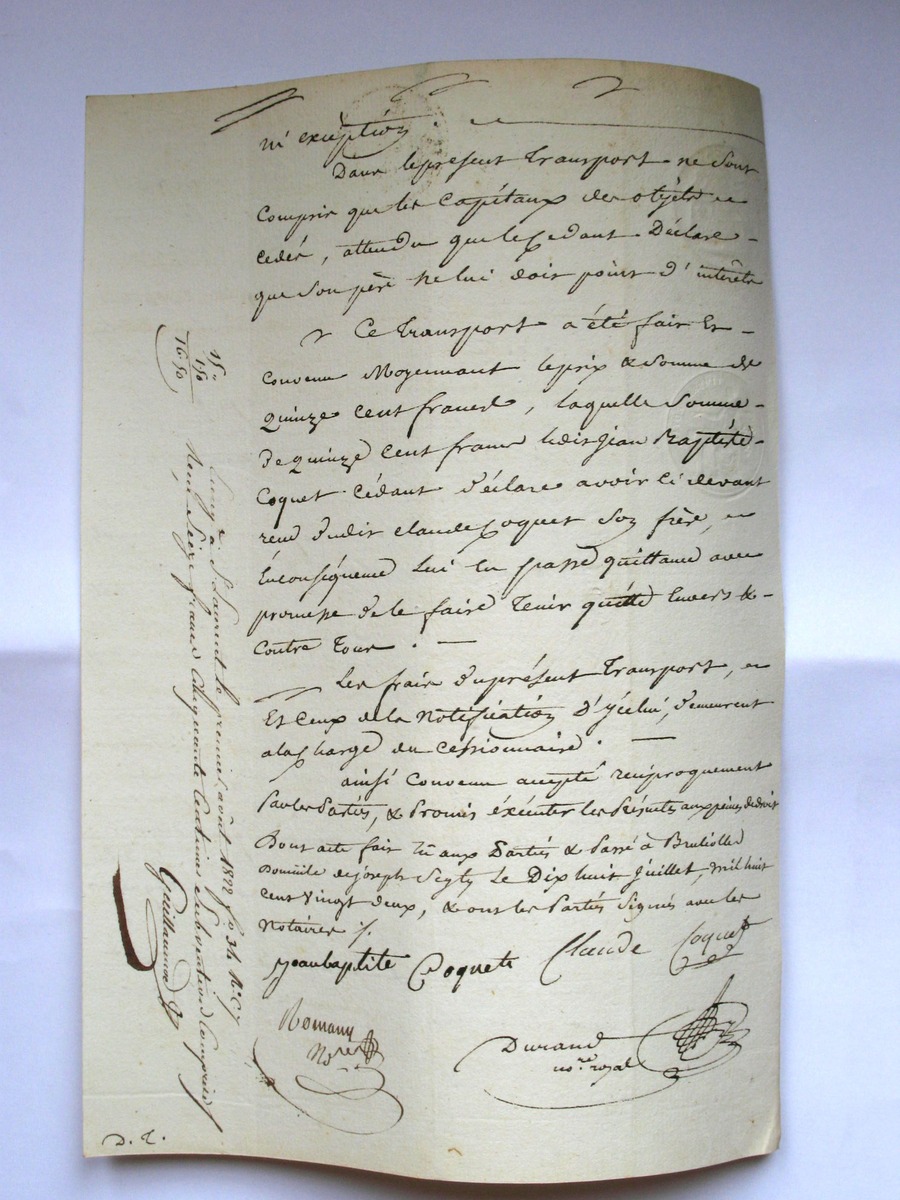 ni exception
Dans le present Transport ne sont
Compris que les Capitaux des objets
cédés, attendu que le Cedant Déclare
que son père ne lui doit point d'intérêts
Ce Transport a été fait Et
Convenu Moyennant le prix & Somme de
quinze cent francs, laquelle Somme
de quinze cent francs ledit Jean Baptiste
Coquet Cédant déclare avoir ci devant
reçu dudit Claude Coquet Son frère, en
Conséquence Lui En passe quittance avec
promesse de le faire Tenir quitte Envers &
Contre Tous.
Les frais du présent Transport,
Et Ceux de la Notification D'ycelui, demeurent
a la Charge du Cessionnaire.
ainsi Convenu accepté réciproquement
Par les Parties, & Promis éxécuter les Présentes aux peines de droit
Dont acte fait lû aux Parties & Passé à
Domicile de Joseph Le Dix huit Juillet, mil huit
cent vingt deux, & ont les Parties Signés avec les
Notaires
Jean baptite Coquet Claude Coquet
Romany
Nore
Durand
no.re royal
15"
1 50
16 50
S. Laurent le premier août 1822 fo 34
Reçu Seize francs Cinquante Centimes Subvention Comprise
Guillaumod
D. T.